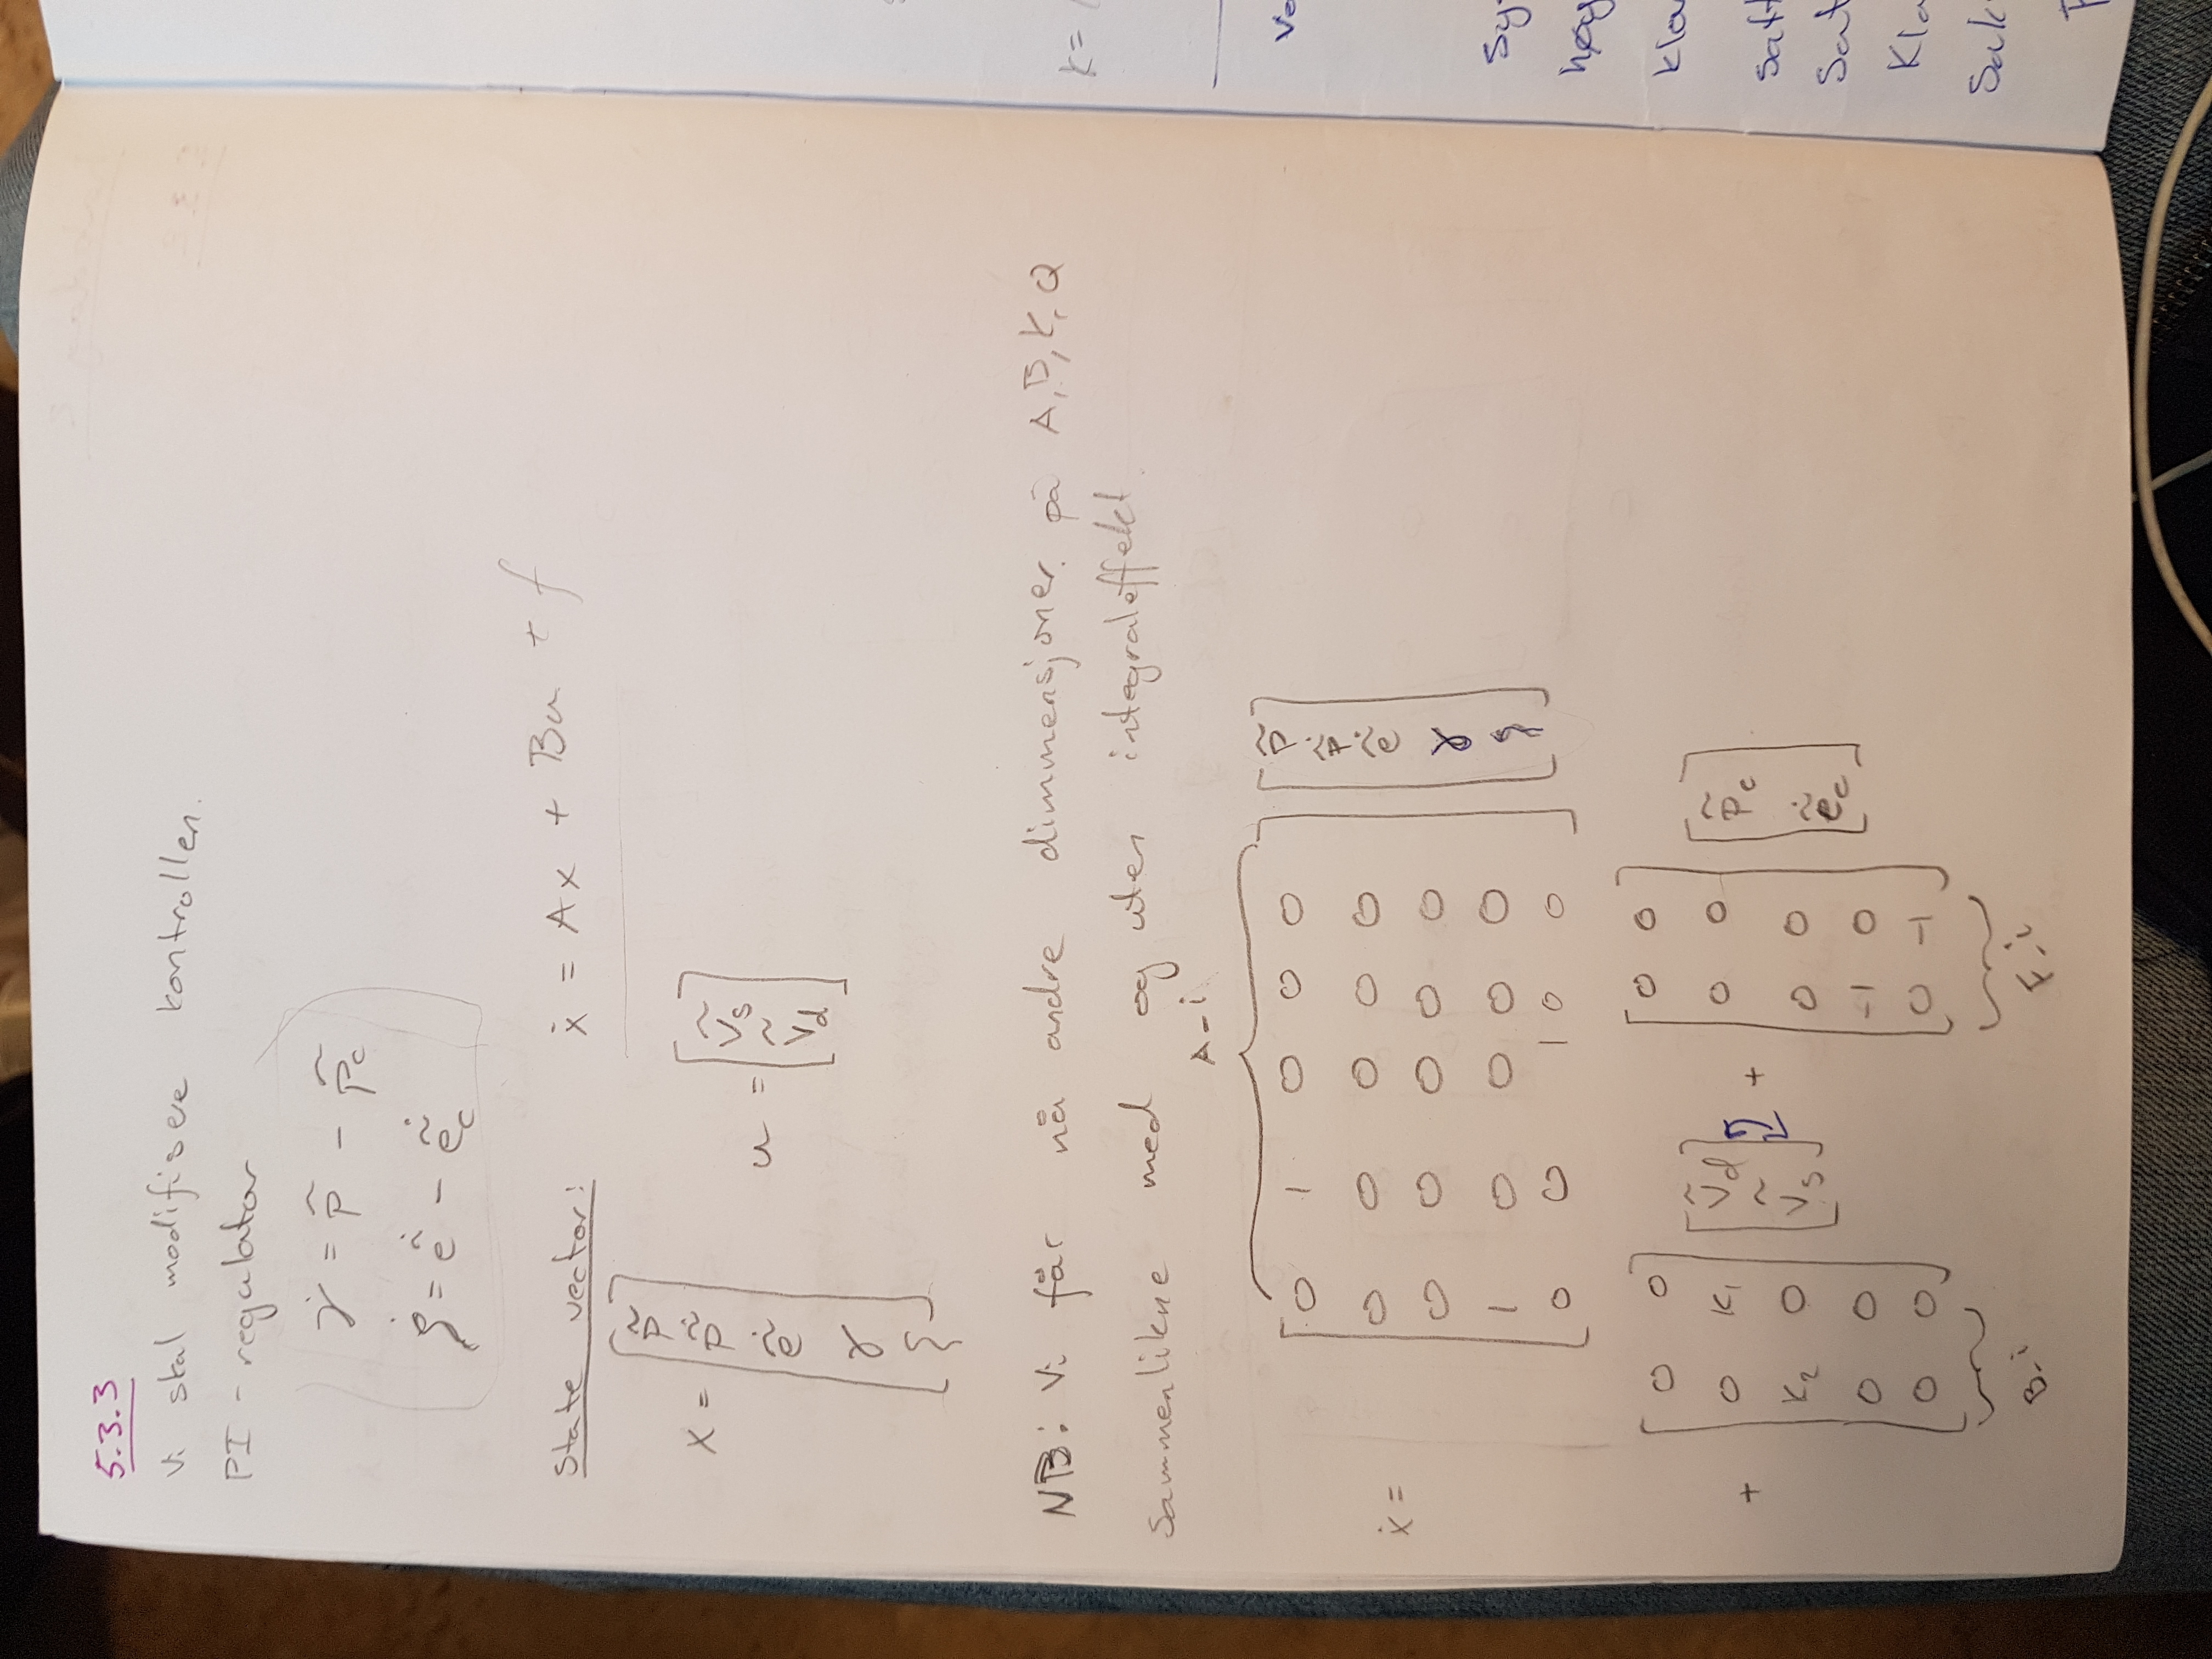 5.3.3
Vi skal modifisere kontrollen.
PI - regulator
γ̇ = p̃ - p̃c
ζ̇ = ė̃ - ė̃c
State vector:
ẋ = Ax + Bu + f
x = [p̃ ṗ̃ ė̃ γ ζ]
u = [Ṽs Ṽd]
NB: Vi får nå andre dimmensjoner på A, B, K, Q
Sammenlikne med og uten integraleffekt.
A_i
ẋ =
0 1 0 0 0
0 0 0 0 0
0 0 0 0 0
1 0 0 0 0
0 0 1 0 0
[p̃ ṗ̃ ė̃ γ ζ]
+
0 0
0 K₁
K₂ 0
0 0
0 0
[Ṽd Ṽs]
+
0 0
0 0
0 0
-1 0
0 -1
[p̃c ė̃c]
B_i
F_i
K=
Sy
høg
kla
satt
Sat
Kla
Sak